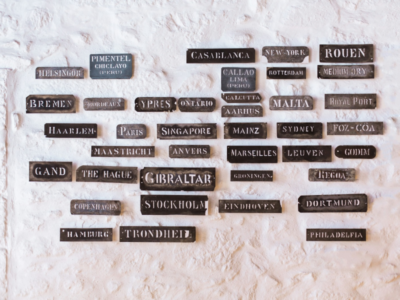 CASABLANCA
NEW-YORK
ROUEN
PIMENTEL
CHICLAYO
(PEROU)
HELSINGÖR
CALLAO
LIMA
(PEROU)
ROTTERDAM
BREMEN
BORDEAUX
YPRES
ONTARIO
CALCUTTA
AARHUS
MALTA
ROYAL PORT
HAARLEM-
PARIS
SINGAPORE
MAINZ
SYDNEY
FOZ-COA
MAASTRICHT
ANVERS
MARSEILLES
LEUVEN
GODIM
GAND
THE HAGUE
GIBRALTAR
GRONINGEN
REGOA
COPENHAGEN
STOCKHOLM
EINDHOVEN
DORTMUND
HAMBURG
TRONDHEIL
PHILADELFIA